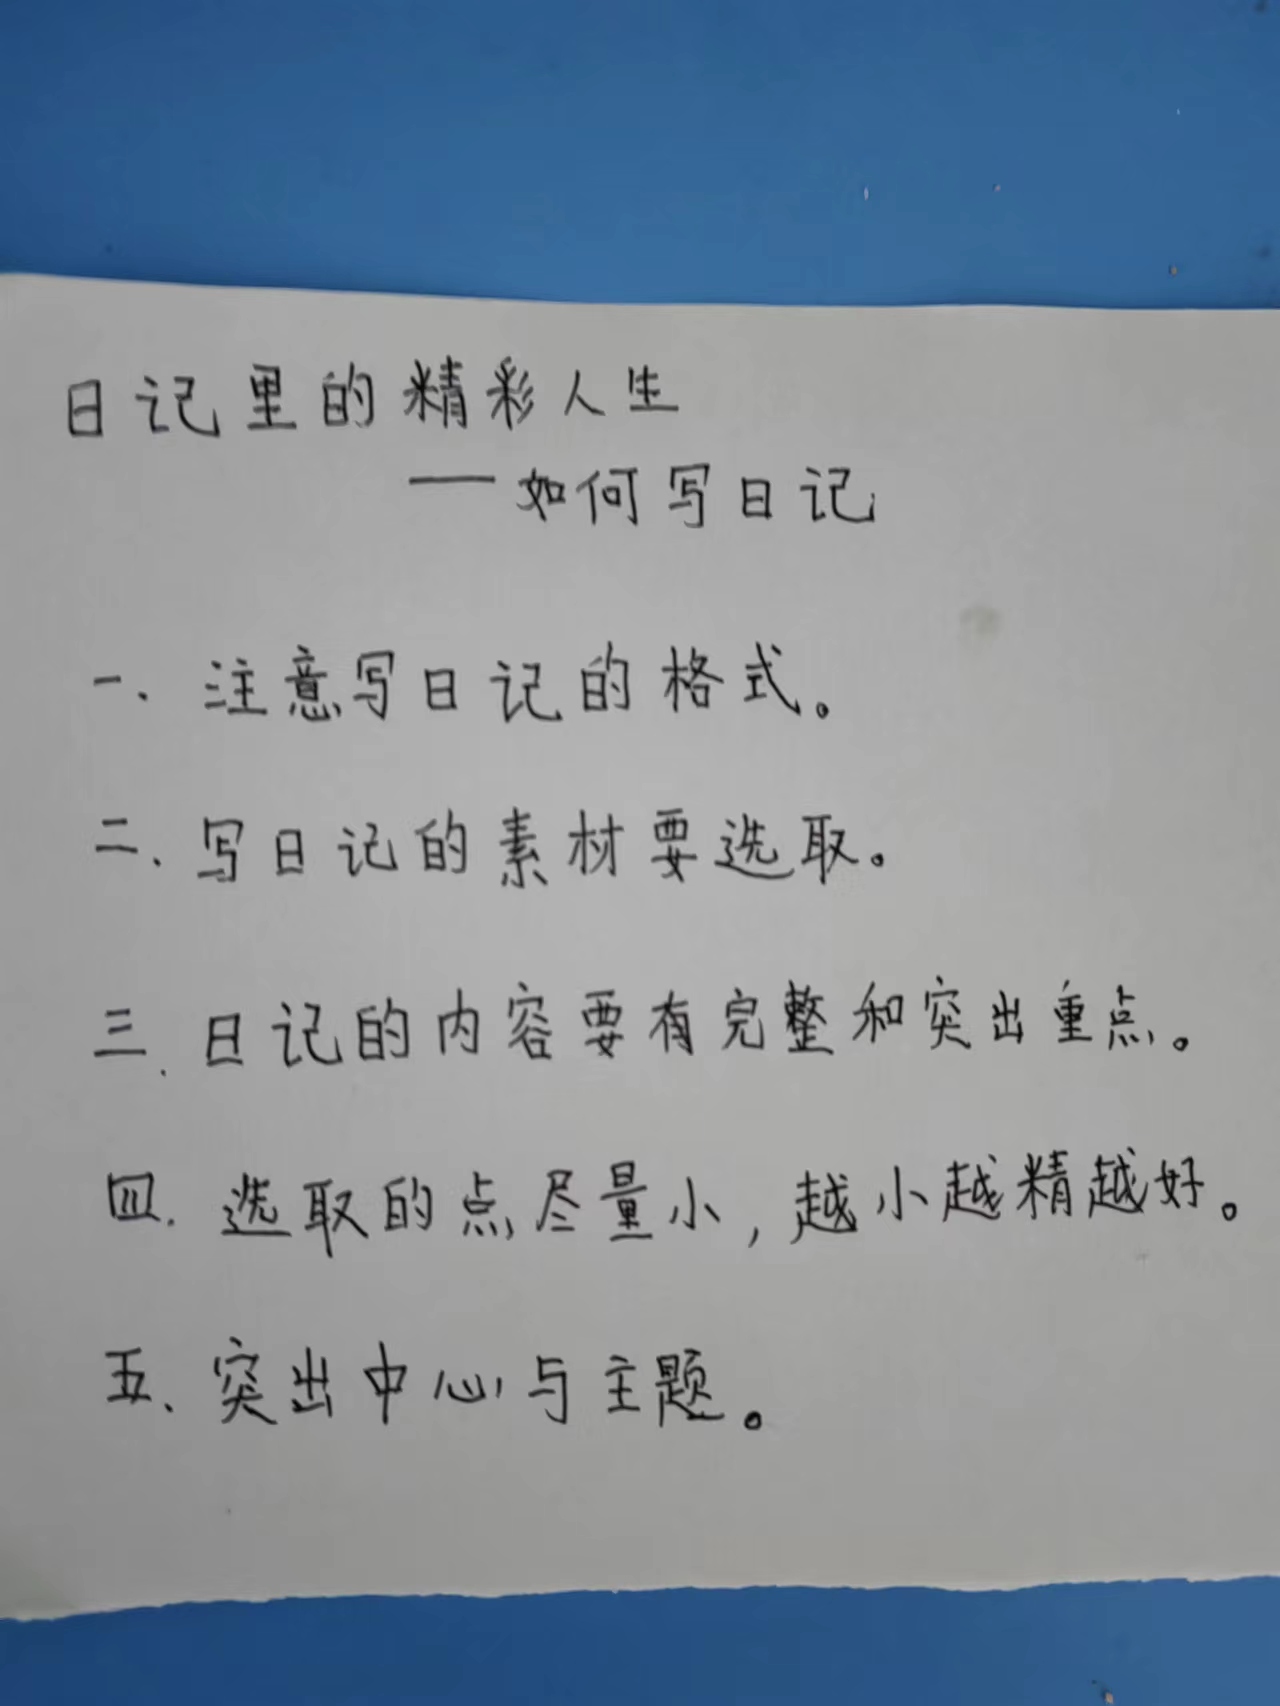 日记里的精彩人生
—如何写日记
一、注意写日记的格式。
二、写日记的素材要选取。
三、日记的内容要有完整和突出重点。
四、选取的点尽量小，越小越精越好。
五、突出中心与主题。